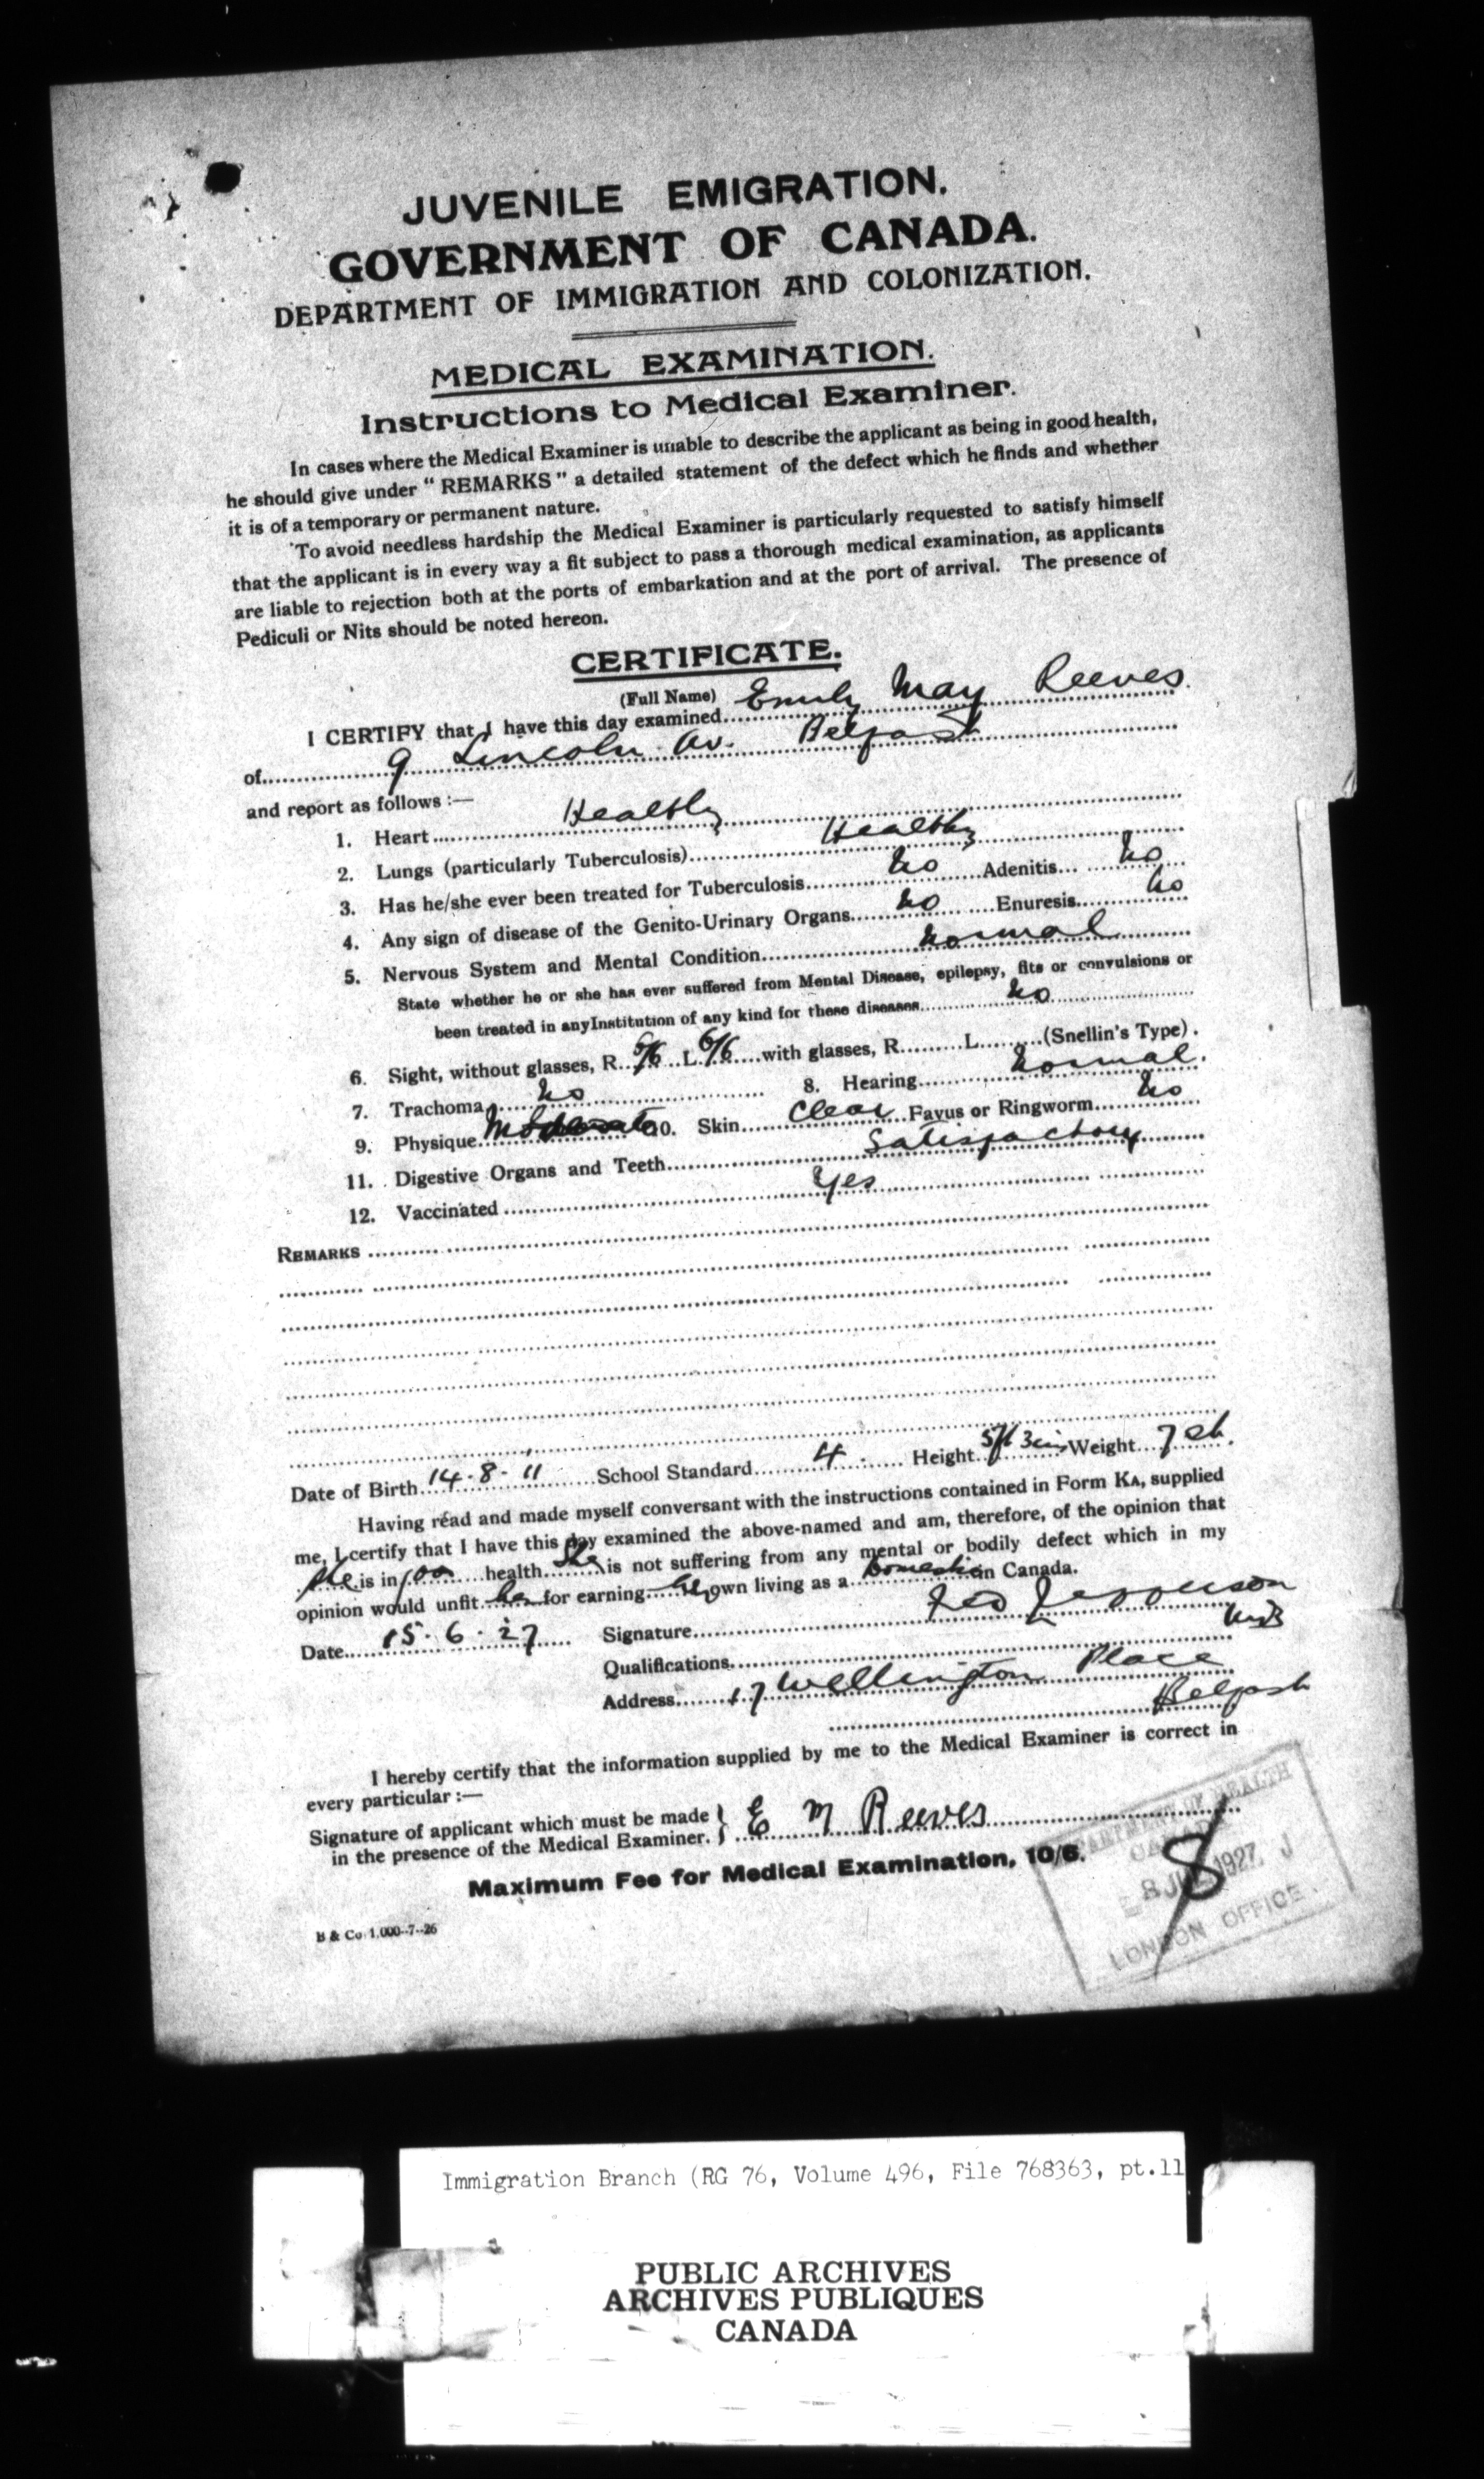 JUVENILE EMIGRATION.
GOVERNMENT OF CANADA.
DEPARTMENT OF IMMIGRATION AND COLONIZATION.
MEDICAL EXAMINATION.
Instructions to Medical Examiner.
In cases where the Medical Examiner is unable to describe the applicant as being in good health,
he should give under "REMARKS" a detailed statement of the defect which he finds and whether
it is of a temporary or permanent nature.
To avoid needless hardship the Medical Examiner is particularly requested to satisfy himself
that the applicant is in every way a fit subject to pass a thorough medical examination, as applicants
are liable to rejection both at the ports of embarkation and at the port of arrival. The presence of
Pediculi or Nits should be noted hereon.
CERTIFICATE.
(Full Name)
I CERTIFY that I have this day examined Emily May Reeves
of 9 Lincoln Av. Belfast
and report as follows :—
1. Heart Healthy
2. Lungs (particularly Tuberculosis) Healthy
3. Has he/she ever been treated for Tuberculosis no Adenitis no
4. Any sign of disease of the Genito-Urinary Organs no Enuresis no
5. Nervous System and Mental Condition normal
State whether he or she has ever suffered from Mental Disease, epilepsy, fits or convulsions or
been treated in any Institution of any kind for these diseases no
6. Sight, without glasses, R. 6/6 L. 6/6 with glasses, R. L. (Snellin's Type).
7. Trachoma no 8. Hearing normal.
9. Physique Moderate 10. Skin clear Favus or Ringworm no
11. Digestive Organs and Teeth Satisfactory
12. Vaccinated Yes
REMARKS
Date of Birth 14.8.11 School Standard 4. Height 5ft 3in Weight 7 st.
Having read and made myself conversant with the instructions contained in Form KA, supplied
me, I certify that I have this day examined the above-named and am, therefore, of the opinion that
she is in good health She is not suffering from any mental or bodily defect which in my
opinion would unfit her for earning her own living as a Domestic in Canada.
Date 15.6.27 Signature
Qualifications MB
Address 17 Wellington Place
Belfast
I hereby certify that the information supplied by me to the Medical Examiner is correct in
every particular :—
Signature of applicant which must be made } E M Reeves
in the presence of the Medical Examiner.
Maximum Fee for Medical Examination, 10/6.
DEPARTMENT OF HEALTH
CANADA
8 1927 J
LONDON OFFICE.
8
B & Co. 1,000--7--26
Immigration Branch (RG 76, Volume 496, File 768363, pt.11
PUBLIC ARCHIVES
ARCHIVES PUBLIQUES
CANADA